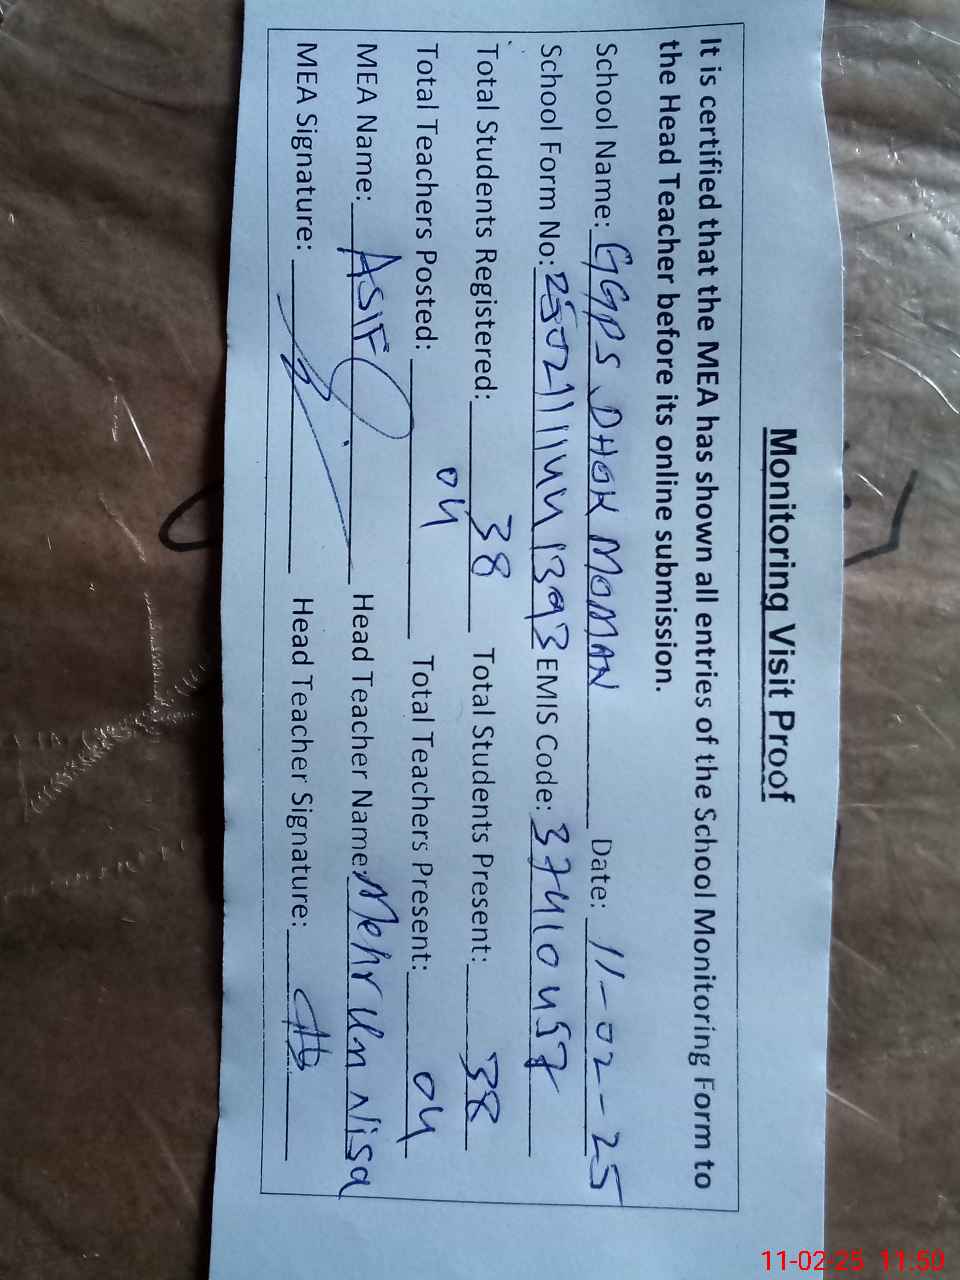 Monitoring Visit Proof
It is certified that the MEA has shown all entries of the School Monitoring Form to
the Head Teacher before its online submission.
School Name: GGPS DHOK MOMAN Date: 11-02-25
School Form No: 25021111441393 EMIS Code: 37410457
Total Students Registered: 38 Total Students Present: 38
Total Teachers Posted: 04 Total Teachers Present: 04
MEA Name: ASIF Head Teacher Name: Mehr Un Nisa
MEA Signature: Head Teacher Signature:
11-02-25 11:50